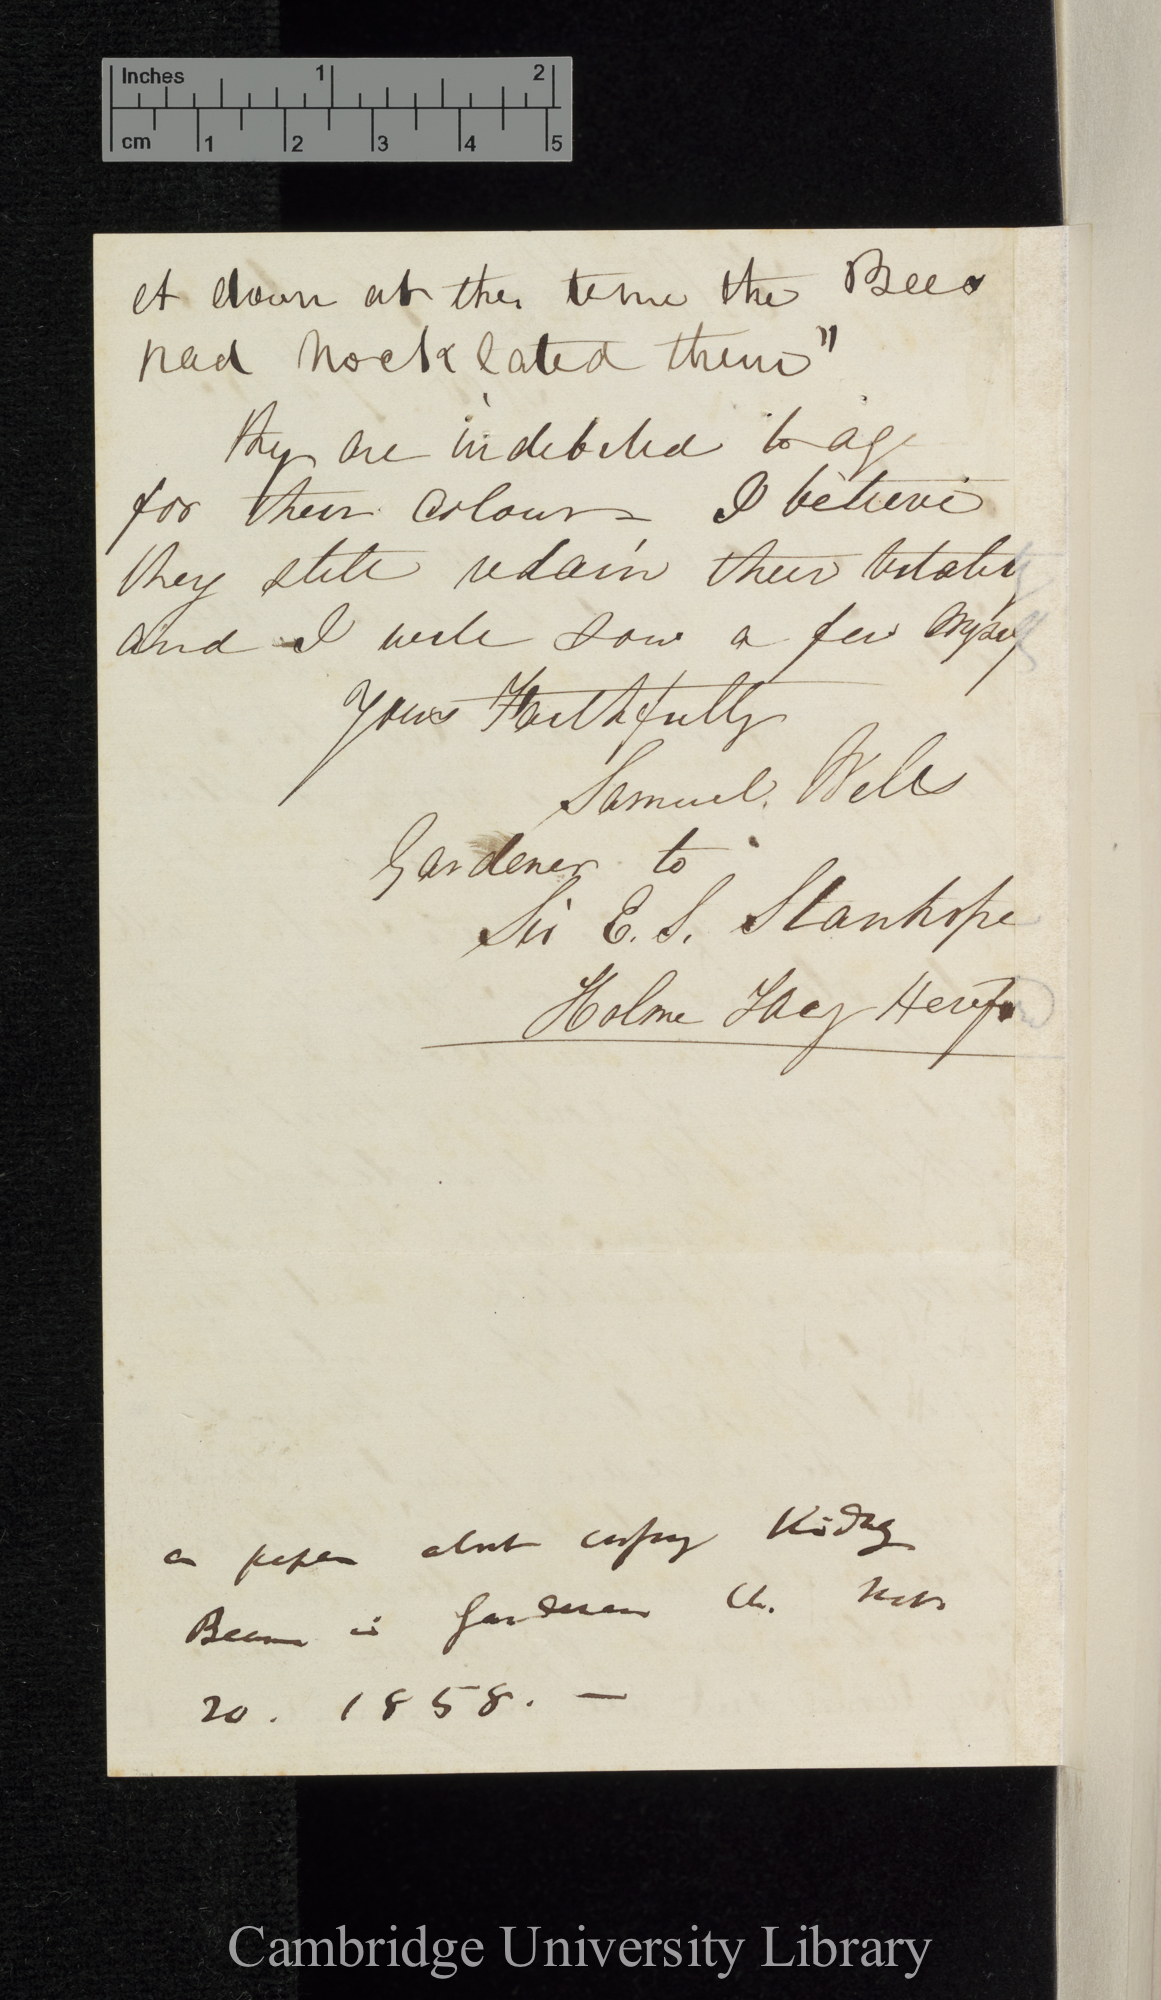 Inches 1 2
cm 1 2 3 4 5
et down at ther time the Bees
had Nocklated them"
they are indebted to age
for their colour - I believe
they still retain their vitality
and I will sow a few myself
Yours Faithfully
Samuel. Wells
Gardener to
Sir E. S. Stanhope
Holme Lacy Hereford
a paper about Kidney
Beans in Gardeners Ch. Nov
20. 1858. —
Cambridge University Library